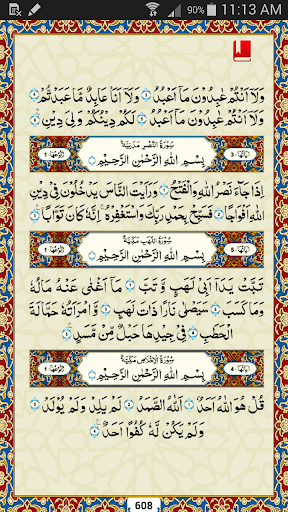 90% 11:13 AM
وَلَآ اَنْتُمْ عٰبِدُوْنَ مَآ اَعْبُدُ وَلَآ اَنَا عَابِدٌ مَّا عَبَدْتُّمْ
وَلَآ اَنْتُمْ عٰبِدُوْنَ مَآ اَعْبُدُ لَكُمْ دِيْنُكُمْ وَلِيَ دِيْنِ
سُوْرَةُ النَّصْرِ مَدَنِيَّةٌ
اٰيَاتُهَا 3 رُكُوْعُهَا 1
بِسْمِ اللّٰهِ الرَّحْمٰنِ الرَّحِيْمِ
اِذَا جَآءَ نَصْرُ اللّٰهِ وَالْفَتْحُ وَرَاَيْتَ النَّاسَ يَدْخُلُوْنَ فِيْ دِيْنِ
اللّٰهِ اَفْوَاجًا فَسَبِّحْ بِحَمْدِ رَبِّكَ وَاسْتَغْفِرْهُ اِنَّهٗ كَانَ تَوَّابًا
سُوْرَةُ اللَّهَبِ مَكِّيَّةٌ
اٰيَاتُهَا 5 رُكُوْعُهَا 1
بِسْمِ اللّٰهِ الرَّحْمٰنِ الرَّحِيْمِ
تَبَّتْ يَدَآ اَبِيْ لَهَبٍ وَّتَبَّ مَآ اَغْنٰى عَنْهُ مَالُهٗ
وَمَا كَسَبَ سَيَصْلٰى نَارًا ذَاتَ لَهَبٍ وَّامْرَاَتُهٗ حَمَّالَةَ
الْحَطَبِ فِيْ جِيْدِهَا حَبْلٌ مِّنْ مَّسَدٍ
سُوْرَةُ الْاِخْلَاصِ مَكِّيَّةٌ
اٰيَاتُهَا 4 رُكُوْعُهَا 1
بِسْمِ اللّٰهِ الرَّحْمٰنِ الرَّحِيْمِ
قُلْ هُوَ اللّٰهُ اَحَدٌ اَللّٰهُ الصَّمَدُ لَمْ يَلِدْ وَلَمْ يُوْلَدْ
وَلَمْ يَكُنْ لَّهٗ كُفُوًا اَحَدٌ
608